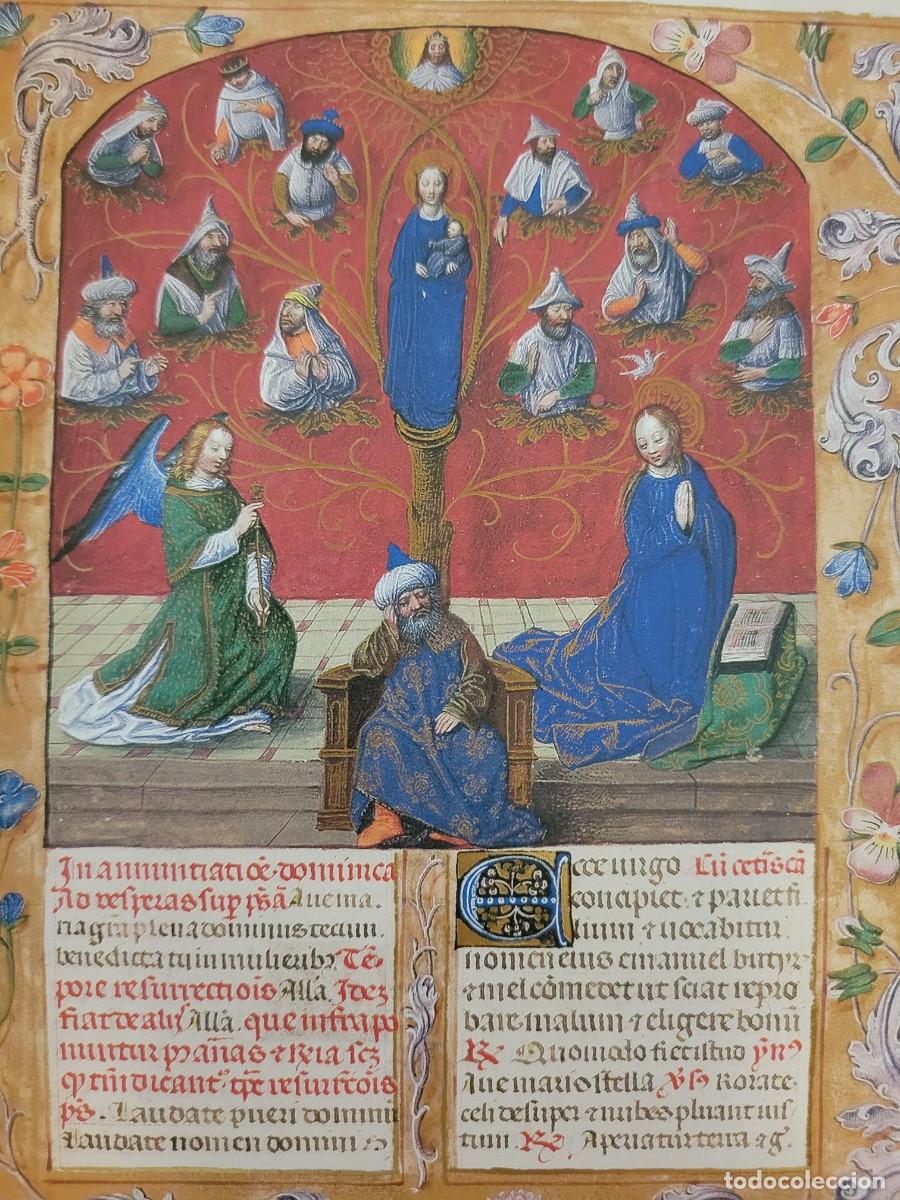 In annuntiati ōe · dominica
Ad vesperas sup̄ ps̄ā Ave ma
ria gr̄a plena dominus tecum
benedicta tu in mulierib⁊ Tē
pore resurrectiois Alla. Idez
fiat de alijs Alla. que infra po
nuntur p
qr̄ tm̄ dicant᾿ tp̄e resurrēcōis
ps̄. Laudate pueri dominū
Laudate nomen domini
Ecce uirgo Lū
concipiet · ⁊ pariet fi
lium ⁊ uocabitur
nomen eius emanuel butyr
⁊ mel cōmedet ut sciat repro
bare malum ⁊ eligere bonū
R⁊ Quomodo fiet istud ẏm᾿
Aue maris stella v̄s᾿ Rorate
celi desuper ⁊ nubes pluant ius
tum R⁊ Aperiatur terra ⁊ g̃.
todocoleccion